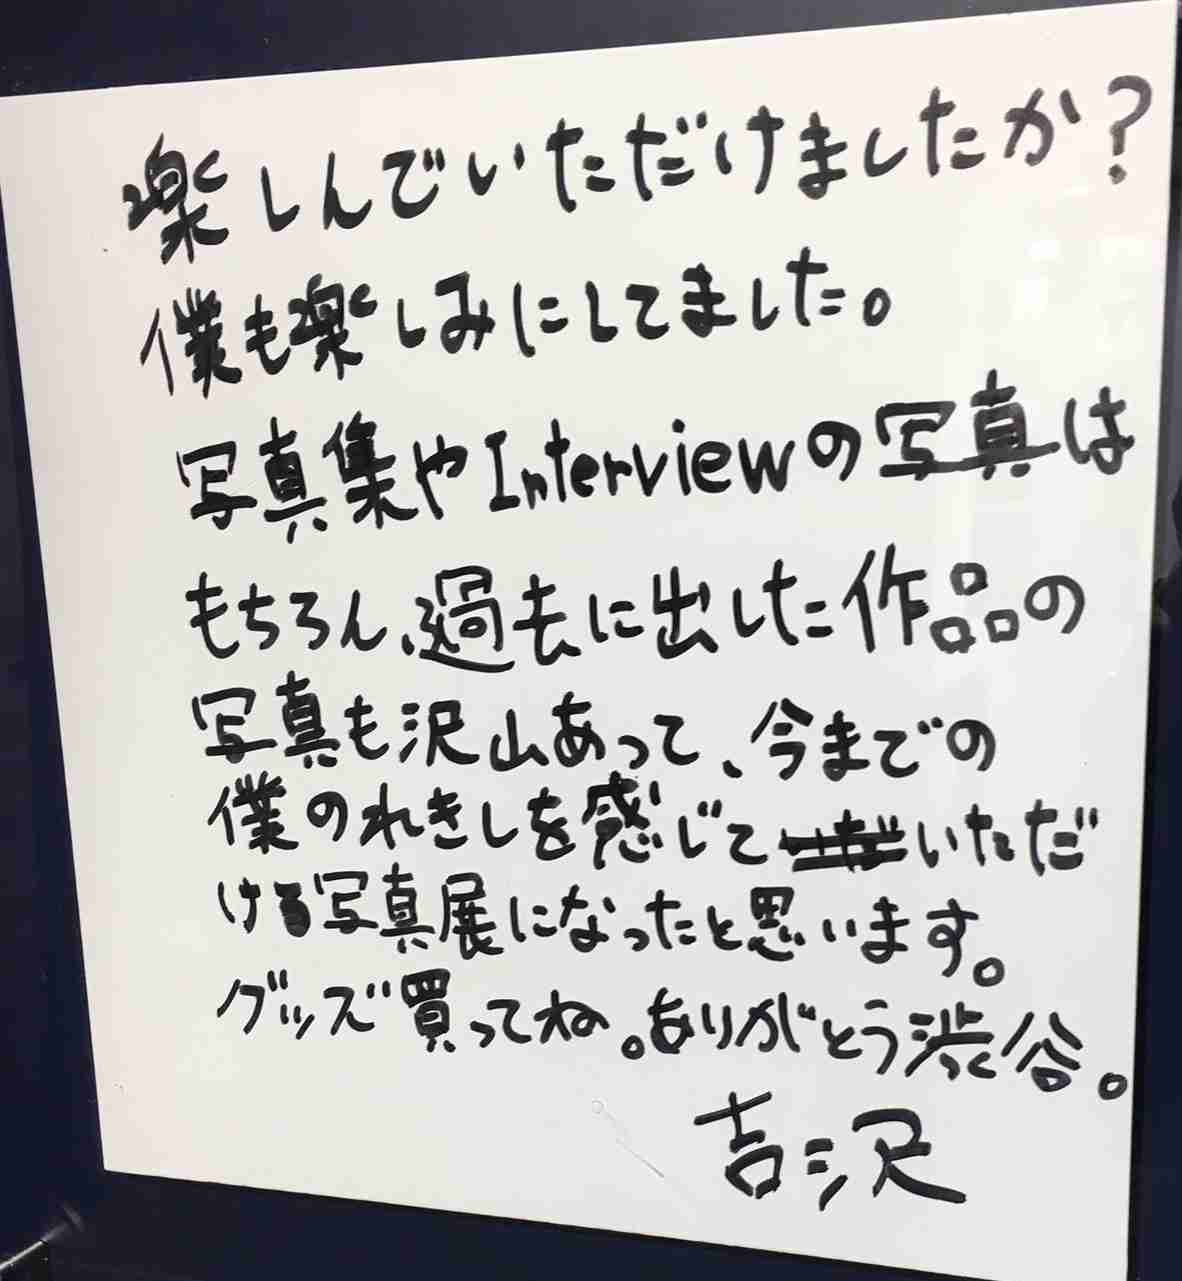 楽しんでいただけましたか?
僕も楽しみにしてました。
写真集やInterviewの写真は
もちろん、過去に出した作品の
写真も沢山あって、今までの
僕のれきしを感じていただ
ける写真展になったと思います。
グッズ買ってね。ありがとう渋谷。
吉沢